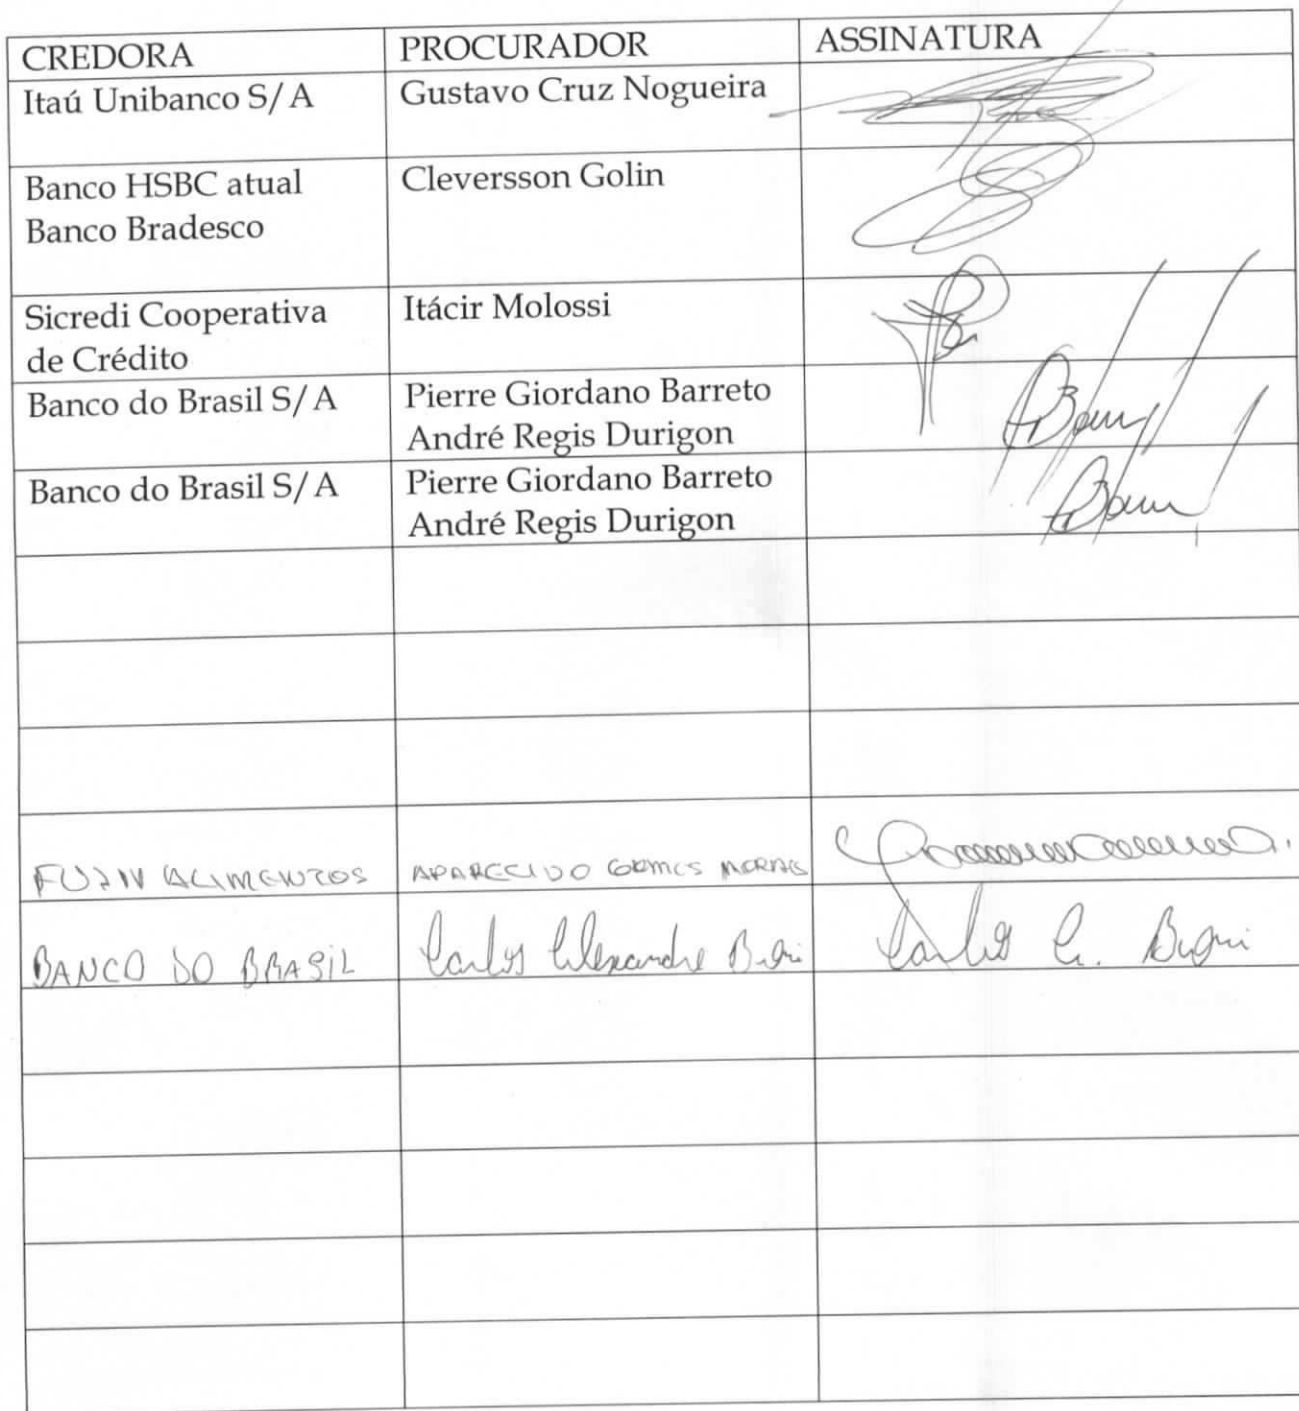 CREDORA PROCURADOR ASSINATURA
Itaú Unibanco S/A Gustavo Cruz Nogueira
Banco HSBC atual Cleversson Golin
Banco Bradesco
Sicredi Cooperativa Itácir Molossi
de Crédito
Banco do Brasil S/A Pierre Giordano Barreto
André Regis Durigon
Banco do Brasil S/A Pierre Giordano Barreto
André Regis Durigon
ALIMENTOS APARECIDO GOMES MORAES
BANCO DO BRASIL Carlos Alexandre
Carlos A.